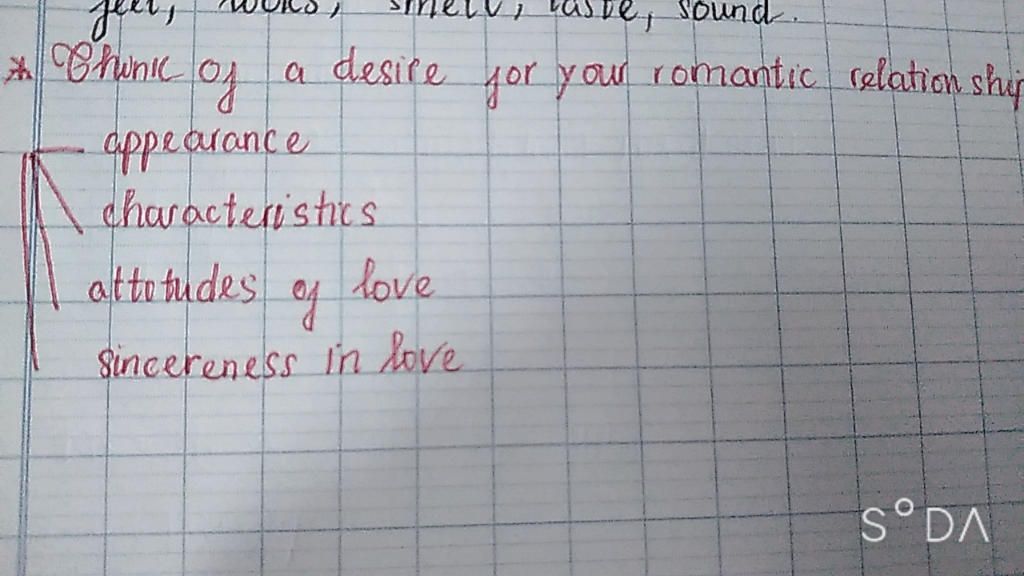 feel, looks, smell, taste, sound.
* Think of a desire for your romantic relationship
appearance
characteristics
attotudes of love
sincereness in love
S°DA